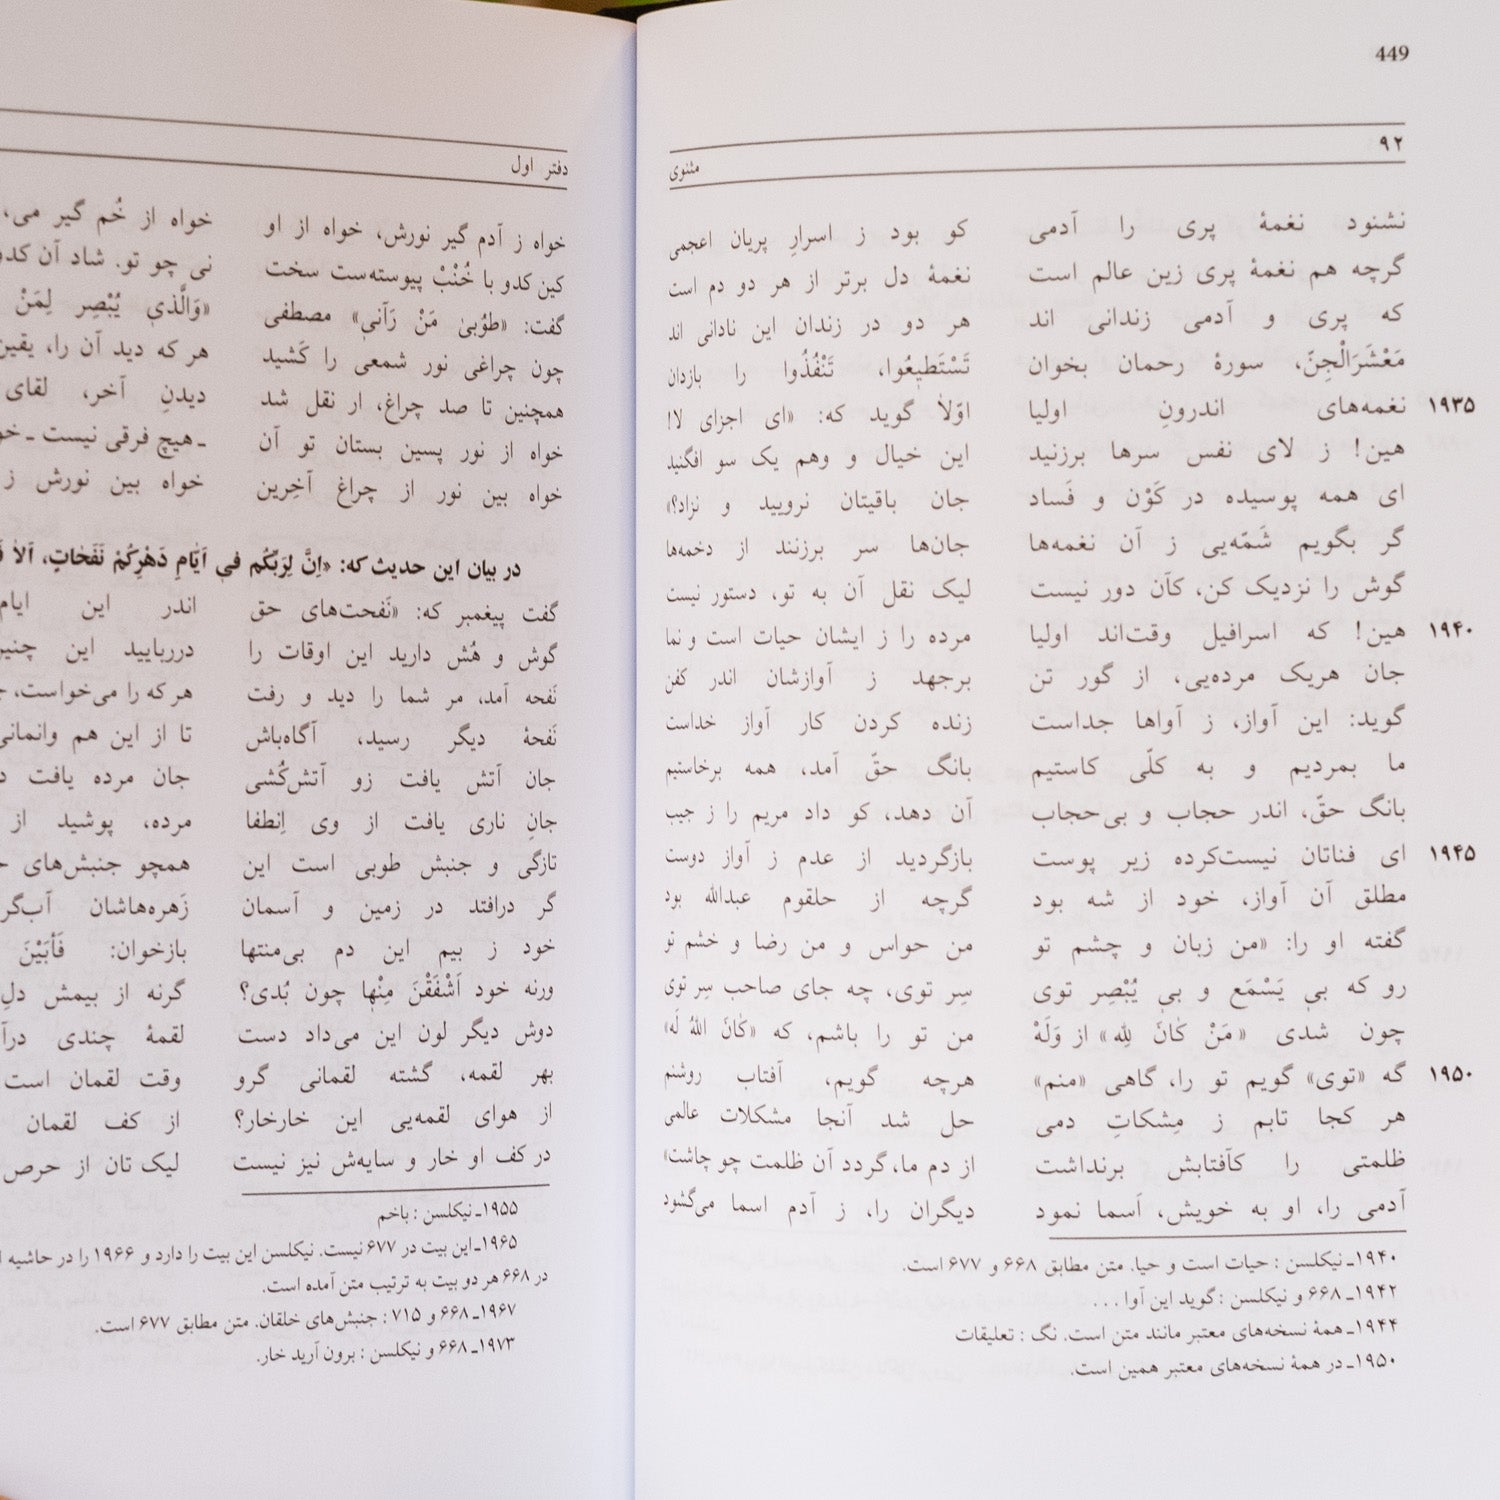 449
۹۲
مثنوی
نشنود نغمهٔ پری را آدمی کو بود ز اسرارِ پریان اعجمی
گرچه هم نغمهٔ پری زین عالم است نغمهٔ دل برتر از هر دو دم است
که پری و آدمی زندانی اند هر دو در زندان این نادانی اند
مَعْشَرَالْجِنّ، سورهٔ رحمان بخوان تَسْتَطیعُوا، تَنْفُذُوا را بازدان
۱۹۳۵ نغمه‌های اندرونِ اولیا اوّلاً گوید که: «ای اجزای لا!
هین! ز لای نفس سرها برزنید این خیال و وهم یک سو افگنید
ای همه پوسیده در کَوْن و فَساد جان باقیتان نرویید و نزاد؟»
گر بگویم شَمّه‌یی ز آن نغمه‌ها جان‌ها سر برزنند از دخمه‌ها
گوش را نزدیک کن، کآن دور نیست لیک نقل آن به تو، دستور نیست
۱۹۴۰ هین! که اسرافیل وقت‌اند اولیا مرده را ز ایشان حیات است و نما
جان هریک مرده‌یی، از گور تن برجهد ز آوازشان اندر کفن
گوید: این آواز، ز آواها جداست زنده کردن کار آواز خداست
ما بمردیم و به کلّی کاستیم بانگ حقّ آمد، همه برخاستیم
بانگ حقّ، اندر حجاب و بی‌حجاب آن دهد، کو داد مریم را ز جیب
۱۹۴۵ ای فناتان نیست‌کرده زیر پوست بازگردید از عدم ز آواز دوست
مطلق آن آواز، خود از شه بود گرچه از حلقوم عبدالله بود
گفته او را: «من زبان و چشم تو من حواس و من رضا و خشم تو
رو که بی یَسْمَع و بی یُبْصِر توی سِر توی، چه جای صاحب سِر توی
چون شدی «مَنْ کانَ لِلّه» از وَلَهْ من تو را باشم، که «کانَ اللهُ لَه»
۱۹۵۰ گه «توی» گویم تو را، گاهی «منم» هرچه گویم، آفتاب روشنم
هر کجا تابم ز مِشکاتِ دمی حل شد آنجا مشکلات عالمی
ظلمتی را کآفتابش برنداشت از دم ما، گردد آن ظلمت چو چاشت»
آدمی را، او به خویش، اَسما نمود دیگران را، ز آدم اسما می‌گشود
۱۹۴۰ـ نیکلسن : حیات است و حیا. متن مطابق ۶۶۸ و ۶۷۷ است.
۱۹۴۲ـ ۶۶۸ و نیکلسن : گوید این آوا . . .
۱۹۴۴ـ همهٔ نسخه‌های معتبر مانند متن است. نگ : تعلیقات
۱۹۵۰ـ در همهٔ نسخه‌های معتبر همین است.
دفتر اول
خواه ز آدم گیر نورش، خواه از او خواه از خُم گیر می،
کین کدو با خُنْبْ پیوسته‌ست سخت نی چو تو. شاد آن
گفت: «طوُبیٰ مَنْ رَآنی» مصطفی «وَالَّذی یُبْصِر لِمَنْ
چون چراغی نور شمعی را کَشید هر که دید آن را، یقین
همچنین تا صد چراغ، ار نقل شد دیدنِ آخر، لقای
خواه از نور پسین بستان تو آن ـ هیچ فرقی نیست ـ
خواه بین نور از چراغِ آخِرین خواه بین نورش ز
در بیان این حدیث که: «اِنَّ لِرَبِّکُم فی اَیّامِ دَهْرِکُمْ نَفَحٰاتٍ، اَلاٰ
گفت پیغمبر که: «نَفحت‌های حق اندر این ایام
گوش و هُش دارید این اوقات را دررباییدِ این
نَفحه آمد، مر شما را دید و رفت هر که را می‌خواست،
نَفحهٔ دیگر رسید، آگاه‌باش تا از این هم وانمانی
جان آتش یافت زو آتش‌کُشی جان مرده یافت
جانِ ناری یافت از وی اِنطفا مرده، پوشید از
تازگی و جنبش طوبی است این همچو جنبش‌های
گر درافتد در زمین و آسمان زَهره‌هاشان
خود ز بیم این دم بی‌منتها بازخوان: فَأبَیْنَ
ورنه خود اَشْفَقْنَ مِنْها چون بُدی؟ گرنه از بیمش دلِ
دوش دیگر لون این می‌داد دست لقمهٔ چندی
بهر لقمه، گشته لقمانی گرو وقت لقمان است
از هوای لقمه‌یی این خارخار؟ از کف لقمان
در کف او خار و سایه‌ش نیز نیست لیک تان از حرص
۱۹۵۵ـ نیکلسن : باخم
۱۹۶۵ـ این بیت در ۶۷۷ نیست. نیکلسن این بیت را دارد و ۱۹۶۶ را در حاشیه
در ۶۶۸ هر دو بیت به ترتیب متن آمده است.
۱۹۶۷ـ ۶۶۸ و ۷۱۵ : جنبش‌های خلقان. متن مطابق ۶۷۷ است.
۱۹۷۳ـ ۶۶۸ و نیکلسن : برون آرید خار.